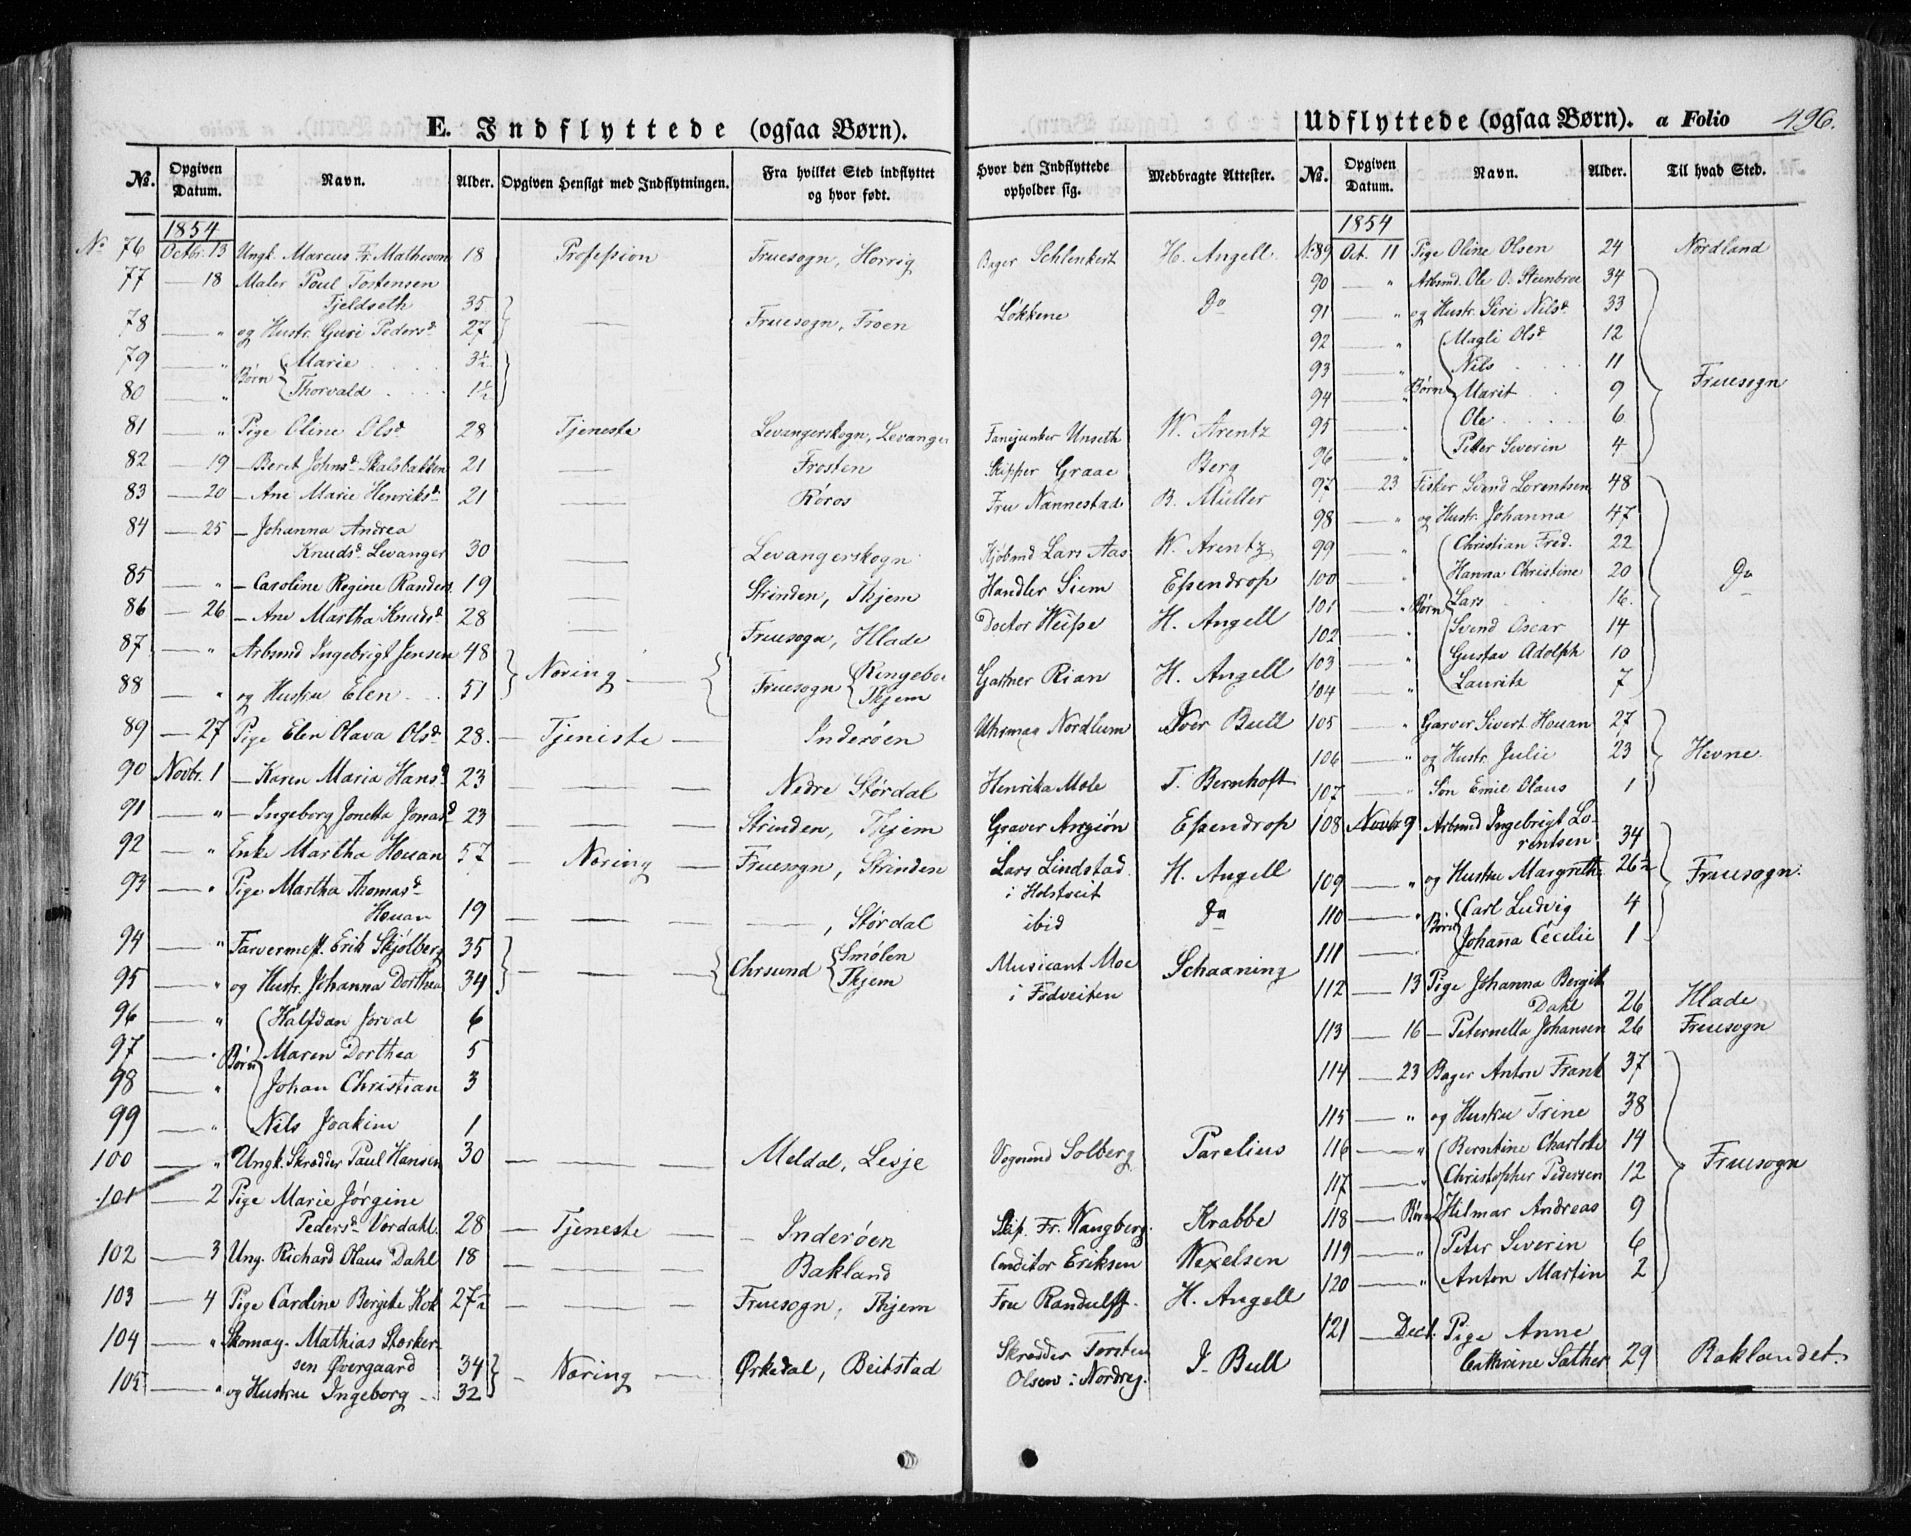 E. Indflyttede (ogsaa Børn).
Udflyttede (ogsaa Børn). a Folio 496.
No. Opgiven Datum. Navn. Alder. Opgiven Hensigt med Indflytningen. Fra hvilket Sted indflyttet og hvor født. Hvor den Indflyttede opholder sig. Medbragte Attester.
1854
No 76 Octbr. 13 Ungk. Marcus Fr. Matheson 18 Profession Fruesogn, Bager Schlenkert H. Angell.
77 — 18 Maler Poul Tostensen
Fjeldseth 35 — Fruesogn, Troen Løkkene Do
78 — " og Hustr. Guri Pedersd. 27
79 — " Børn Marie 3½
80 — " Thorvald 1½
81 — " Pige Oline Olsd. 28 Tjeneste Levangerskogn, Levanger Fanejunker Unseth W. Arentz
82 — 19 — Beret Johnsd. Skalsbakken 21 — Frosten Skipper Graae Berg
83 — 20 — Ane Marie Henriksd. 21 — Røros Fru Nannestad B. Müller
84 — 25 — Johanna Andrea
Knudsd. Levanger 30 — Levangerskogn Kjøbmd Lars Aas W. Arentz
85 — " — Caroline Regine Randers 19 — Strinden, Thjem Handler Siem Essendrop
86 — 26 — Ane Martha Knudsd. 28 — Fruesogn, Hlade Doctor Weisse H. Angell
87 — " Arbsmd Ingebrigt Jensen 48 Næring — Fruesogn Ringeboe Gartner Rian H. Angell
88 — " og Hustru Elen 51 Thjem
89 — 27 Pige Elen Olava Olsd. 28. — Tjeniste — Inderøen Uhrmag Nordlum Iver Bull
90 Novbr. 1 — Karen Maria Hansd. 23 — Nedre Størdal Henrika Mole T. Bernhoft
91 — " — Ingeborg Jonetta Jonasd. 23 — Strinden, Thjem Graver Essendrop
92 — " Enke Martha Houan 57 — Næring — Fruesogn, Strinden Lars Lindstad H. Angell
i Holstveit
93 — " Pige Martha Thomasd.
Houan 19 — —, Størdal ibid Do
94 — " Farvermest. Erik Skjølberg 35 — Chrsund Smølen Musicant Moe Schaaning
95 — " og Hustr. Johanna Dorthea 34 Thjem i Fedveiten
96 — " Børn Halfdan Jorval 6
97 — " Maren Dorthea 5
98 — " Johan Christian 3
99 — " Nils Joakim 1
100 — " Ungk. Skrædder Paul Hansen 30 — Meldal, Lesje Vognmd Solberg Parelius
101 — 2 Pige Marie Jørgine
Pedersd. Vordahl. 28 — Tjeneste — Inderøen Skip. Fr. Wangberg. Krabbe
102 — 3 Ung. Richard Olaus Dahl 18 — Bakland Conditor Eriksen Wexelsen
103 — 4 Pige Caroline Bergite Kok 27½ — Fruesogn, Thjem Fru Randulff. H. Angell
104 — " Skomag. Mathias Storker-
sen Øvergaard 34 — Næring — Ørkedal, Beitstad Skrædder Torsten J. Bull
105 — " og Hustru Ingeborg 32 Olsen i Nordreg.
No. Opgiven Datum. Navn. Alder. Til hvad Sted.
1854
No 89 Oct. 11 Pige Oline Olsen 24 Nordland
90 — " Arbsmd. Ole O. Steenbroe 34
91 — " og Hustr. Siri Nilsd. 33
92 — " Magli Olsd. 12
93 — " Nils 11
94 — " Børn Marit 9 Fruesogn
95 — " Ole 6
96 — " Petter Severin 4
97 — 23 Fisker Svend Lorentsen 48
98 — " og Hustr. Johanna 47
99 — " Christian Fred. 22
100 — " Hanna Christine 20 Do
101 — " Børn Lars 16.
102 — " Svend Oscar 14
103 — " Gustav Adolph 10
104 — " Lauritz 7
105 — " Garver Sivert Houan 27
106 — " og Hustr. Julie 23 Hevne.
107 — " Søn Emil Olaus 1
108 Novbr 9 Arbsmd Ingebrigt Lo-
rentsen 34
109 — " og Hustru Margrethe 26½ Fruesogn.
110 — " Børn Carl Ludvig 4
111 — Johanna Cecilie 1
112 — 13 Pige Johanna Bergit
Dahl 26 Hlade
113 — 16 — Peternella Johansen 26 Fruesogn
114 — 23 Bager Anton Frank 37
115 — " og Hustru Trine 38
116 — " Berntine Charlotte 14
117 — " Christopher Pedersen 12 Fruesogn
118 — Børn Hilmar Andreas 9
119 — " Peter Severin 6
120 — " Anton Martin 2
121 — Decb. Pige Anne
Cathrine Sæther 29 Baklandet.